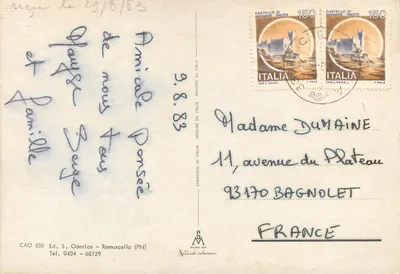 reçu le 29/8/83
9.8.83
Amicale Pensée
de nous tous
Serge
et famille
CAO 350 Ed. S. Odorico - Ramuscello (PN)
Tel. 0434 - 68129
CASTELLO DI MIRAMARE - TRIESTE 150
ITALIA
CASTELLO DI MIRAMARE - TRIESTE 150
ITALIA
Madame DUMAINE
11, avenue du Plateau
93170 BAGNOLET
FRANCE